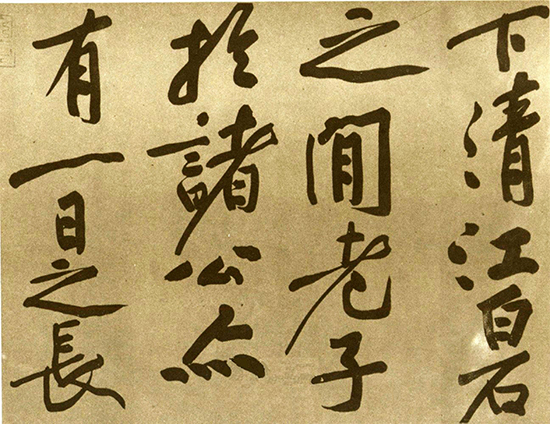 下清江白石
之閒老子
於諸公亦
有一日之長